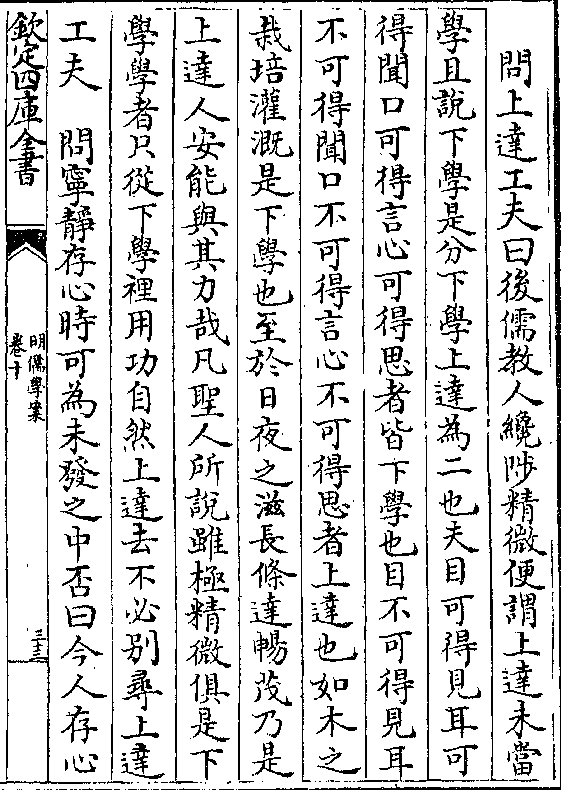 問上達工夫曰後儒教人纔陟精微便謂上達未當
學且說下學是分下學上達為二也夫目可得見耳可
得聞口可得言心可得思者皆下學也目不可得見耳
不可得聞口不可得言心不可得思者上達也如木之
栽培灌溉是下學也至於日夜之滋長條達暢茂乃是
上達人安能與其力哉凡聖人所說雖極精微俱是下
學學者只從下學裡用功自然上達去不必別尋上達
工夫 問寧靜存心時可為未發之中否曰今人存心
欽定四庫全書
明儒學案
卷十
三三